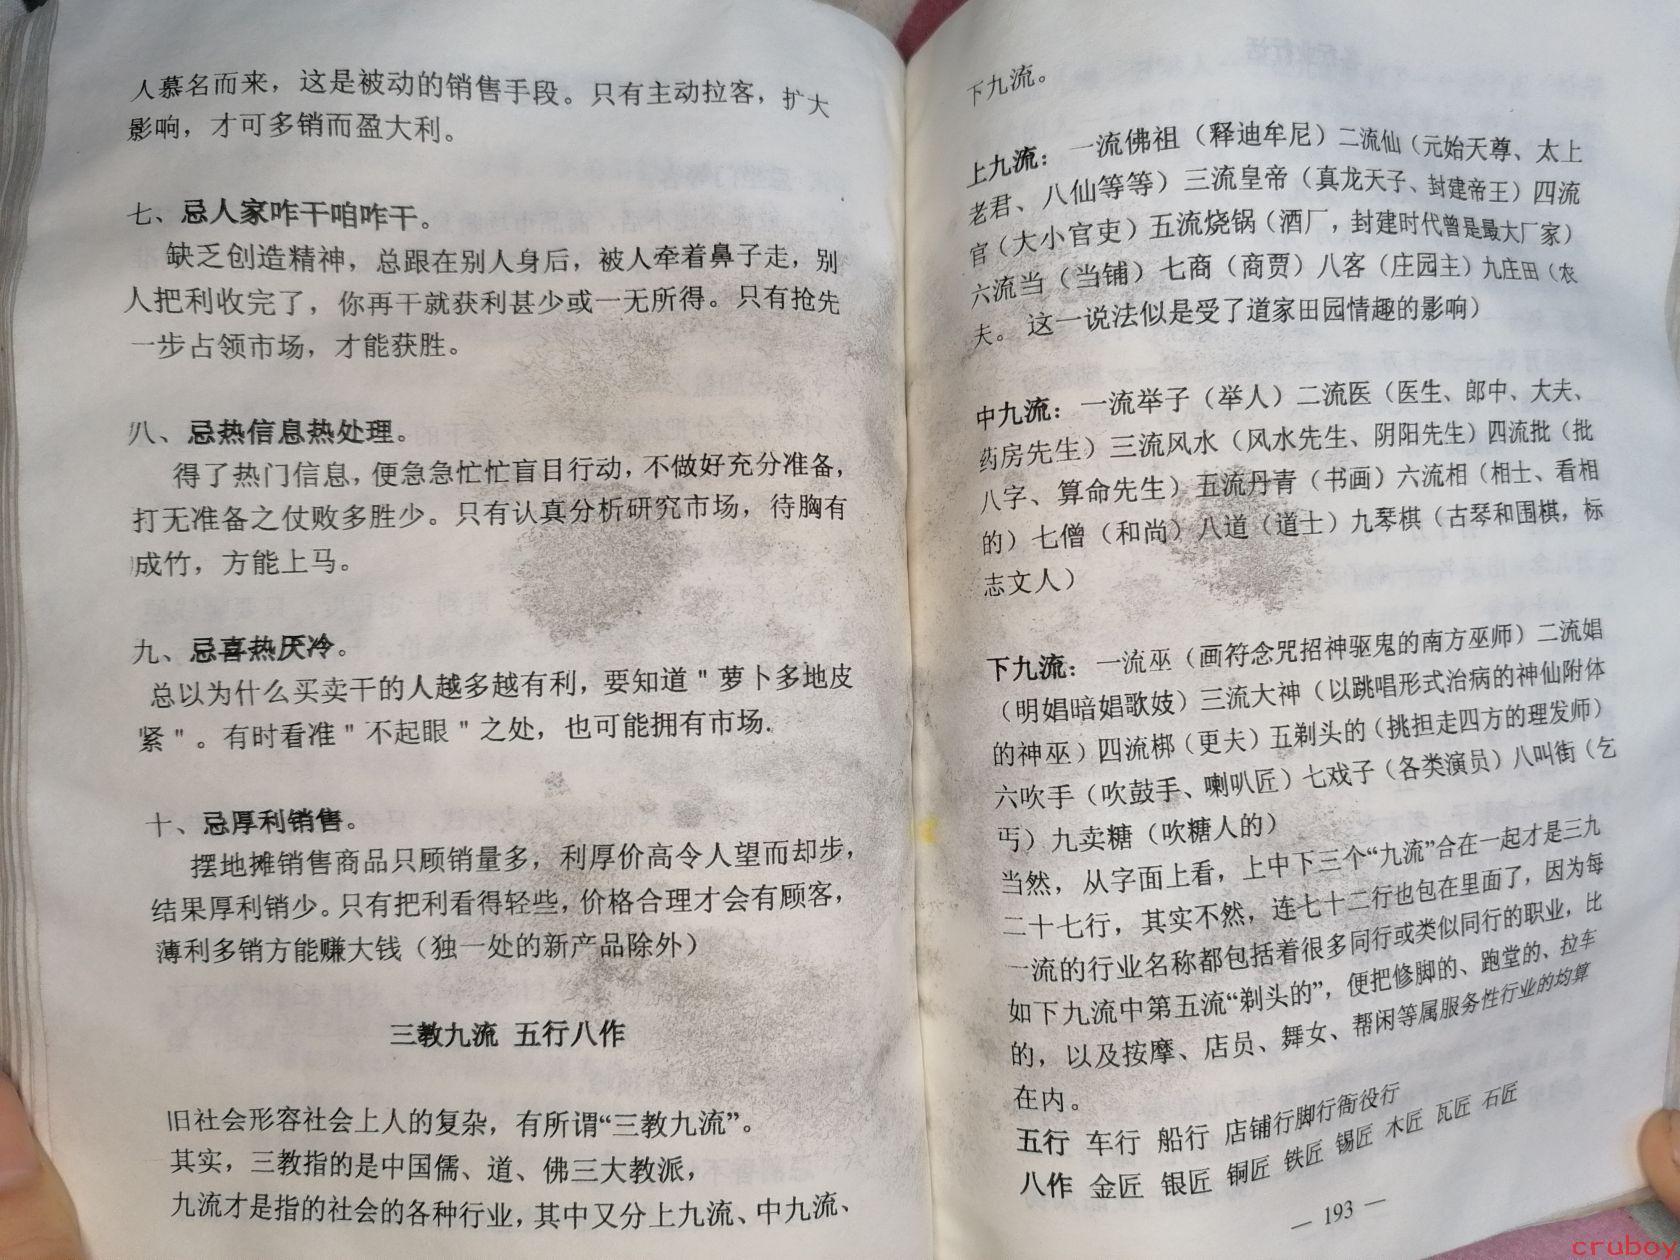 人慕名而来，这是被动的销售手段。只有主动拉客，扩大
影响，才可多销而盈大利。
七、忌人家咋干咱咋干。
缺乏创造精神，总跟在别人身后，被人牵着鼻子走，别
人把利收完了，你再干就获利甚少或一无所得。只有抢先
一步占领市场，才能获胜。
八、忌热信息热处理。
得了热门信息，便急急忙忙盲目行动，不做好充分准备，
打无准备之仗败多胜少。只有认真分析研究市场，待胸有
成竹，方能上马。
九、忌喜热厌冷。
总以为什么买卖干的人越多越有利，要知道"萝卜多地皮
紧"。有时看准"不起眼"之处，也可能拥有市场.
十、忌厚利销售。
摆地摊销售商品只顾销量多，利厚价高令人望而却步，
结果厚利销少。只有把利看得轻些，价格合理才会有顾客，
薄利多销方能赚大钱（独一处的新产品除外）
三教九流 五行八作
旧社会形容社会上人的复杂，有所谓“三教九流”。
其实，三教指的是中国儒、道、佛三大教派，
九流才是指的社会的各种行业，其中又分上九流、中九流、
下九流。
上九流：一流佛祖（释迪牟尼）二流仙（元始天尊、太上
老君、八仙等等）三流皇帝（真龙天子、封建帝王）四流
官（大小官吏）五流烧锅（酒厂，封建时代曾是最大厂家）
六流当（当铺）七商（商贾）八客（庄园主）九庄田（农
夫。这一说法似是受了道家田园情趣的影响）
中九流：一流举子（举人）二流医（医生、郎中、大夫、
药房先生）三流风水（风水先生、阴阳先生）四流批（批
八字、算命先生）五流丹青（书画）六流相（相士、看相
的）七僧（和尚）八道（道士）九琴棋（古琴和围棋，标
志文人）
下九流：一流巫（画符念咒招神驱鬼的南方巫师）二流娼
（明娼暗娼歌妓）三流大神（以跳唱形式治病的神仙附体
的神巫）四流梆（更夫）五剃头的（挑担走四方的理发师）
六吹手（吹鼓手、喇叭匠）七戏子（各类演员）八叫街（乞
丐）九卖糖（吹糖人的）
当然，从字面上看，上中下三个“九流”合在一起才是三九
二十七行，其实不然，连七十二行也包在里面了，因为每
一流的行业名称都包括着很多同行或类似同行的职业，比
如下九流中第五流“剃头的”，便把修脚的、跑堂的、拉车
的，以及按摩、店员、舞女、帮闲等属服务性行业的均算
在内。
五行 车行 船行 店铺行脚行衙役行
八作 金匠 银匠 铜匠 铁匠 锡匠 木匠 瓦匠 石匠
— 193 —
cruboy